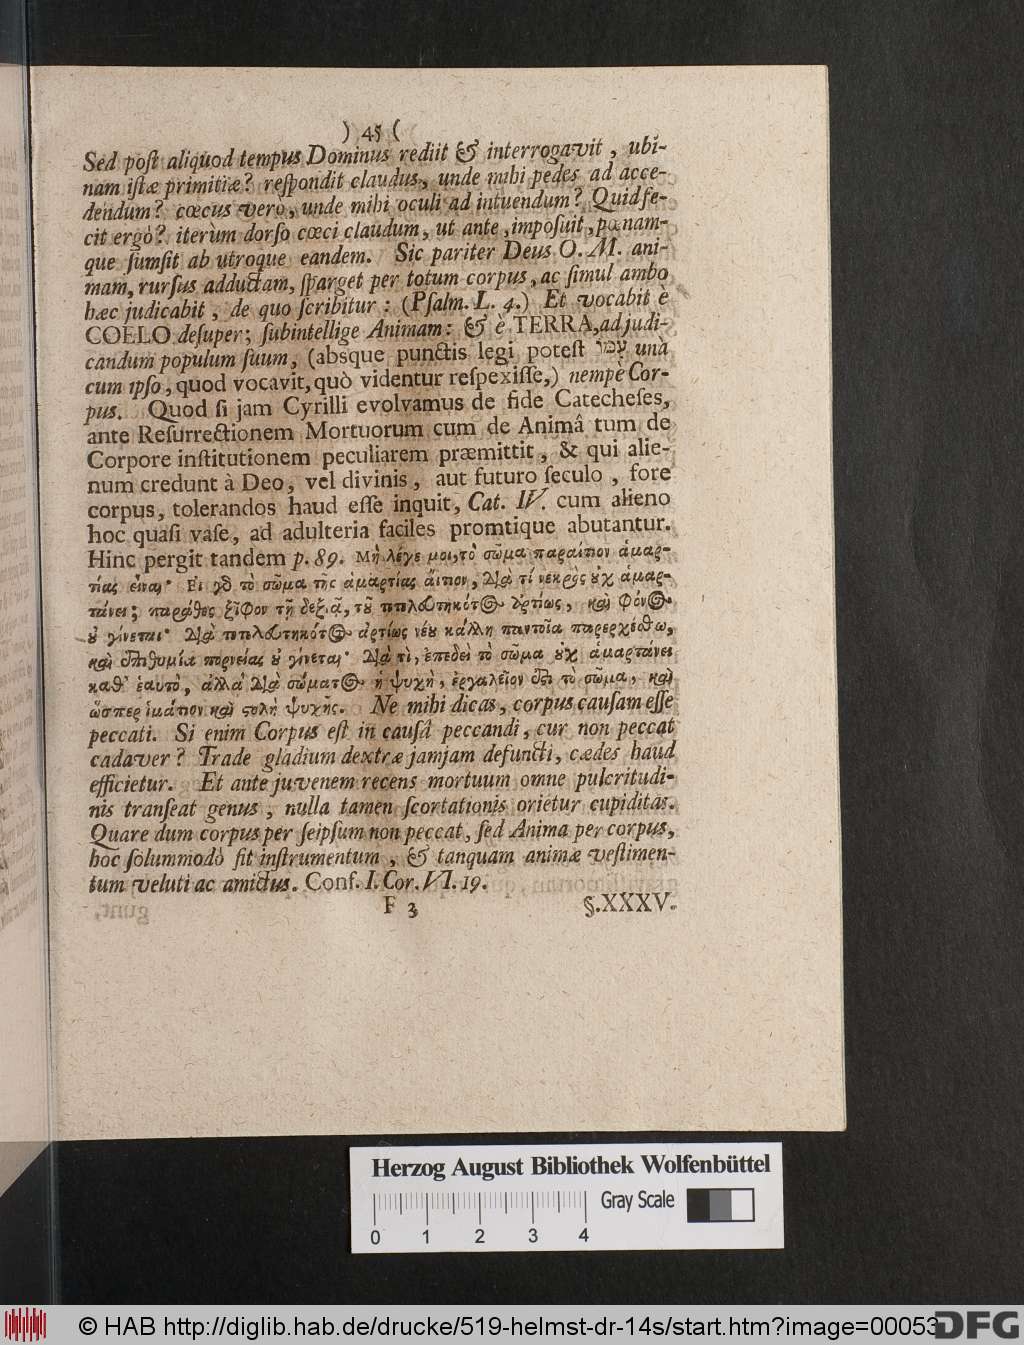 ) 45 (
Sed poſt aliquod tempus Dominus rediit & interrogavit, ubi-
nam iſtæ primitiæ? reſpondit claudus, unde mihi pedes ad acce-
dendum? cœcus verò, unde mihi oculi ad intuendum? Quid fe-
cit ergò? iterùm dorſo cœci claudum, ut ante, impoſuit, pœnam-
que ſumſit ab utroque eandem. Sic pariter Deus O. M. ani-
mam, rurſus adductam, ſparget per totum corpus, ac ſimul ambo
hæc judicabit, de quo ſcribitur: (Pſalm. L. 4.) Et vocabit è
COELO deſuper; ſubintellige Animam: & è TERRA, ad judi-
candum populum ſuum, (absque punctis legi poteſt עמו unà
cum ipſo, quod vocavit, quò videntur reſpexiſſe,) nempè Cor-
pus. Quod ſi jam Cyrilli evolvamus de fide Catecheſes,
ante Reſurrectionem Mortuorum cum de Animâ tum de
Corpore inſtitutionem peculiarem præmittit, & qui alie-
num credunt à Deo, vel divinis, aut futuro ſeculo, fore
corpus, tolerandos haud eſſe inquit, Cat. IV. cum alieno
hoc quaſi vaſe, ad adulteria faciles promtique abutantur.
Hinc pergit tandem p. 89. Μὴ λέγε μοι, τὸ σῶμα παραίτιον ἁμαρ-
τίας εἶναι· Ει γὸ τὸ σῶμα τῆς ἁμαρτίας ἄιτιον, Διὰ τί νεκρὸς ουχ ἁμαρ-
τάνει; παράθες ξίφον τῇ δεξιᾷ, τοῦ τετελευτηκότος ἀρτίως, καὶ φόνος
ου γίνεται· Διὰ τετελευτηκότος ἀρτίως νέου κάλλη παντοῖα παρερχέσθω,
καὶ ἐπιθυμία πορνείας ου γίνεται· Διὰ τὶ, ἐπεδεὶ τὸ σῶμα ουχ ἁμαρτάνει
καθ᾽ ἑαυτὸ, ἀλλὰ Διὰ σώματος ἡ ψυχὴ, ἐργαλεῖον ἐστι τὸ σῶμα, καὶ
ὥσπερ ἱμάτιον καὶ στολὴ ψυχῆς. Ne mihi dicas, corpus cauſam eſſe
peccati. Si enim Corpus eſt in cauſâ peccandi, cur non peccat
cadaver? Trade gladium dextræ jamjam defuncti, cædes haud
efficietur. Et ante juvenem recens mortuum omne pulcritudi-
nis tranſeat genus, nulla tamen ſcortationis orietur cupiditas.
Quare dum corpus per ſeipſum non peccat, ſed Anima per corpus,
hoc ſolummodò ſit inſtrumentum, & tanquam animæ veſtimen-
tum veluti ac amictus. Conf. I. Cor. VI. 19.
F 3 §. XXXV.
Herzog August Bibliothek Wolfenbüttel
Gray Scale
0 1 2 3 4
© HAB http://diglib.hab.de/drucke/519-helmst-dr-14s/start.htm?image=00053
DFG